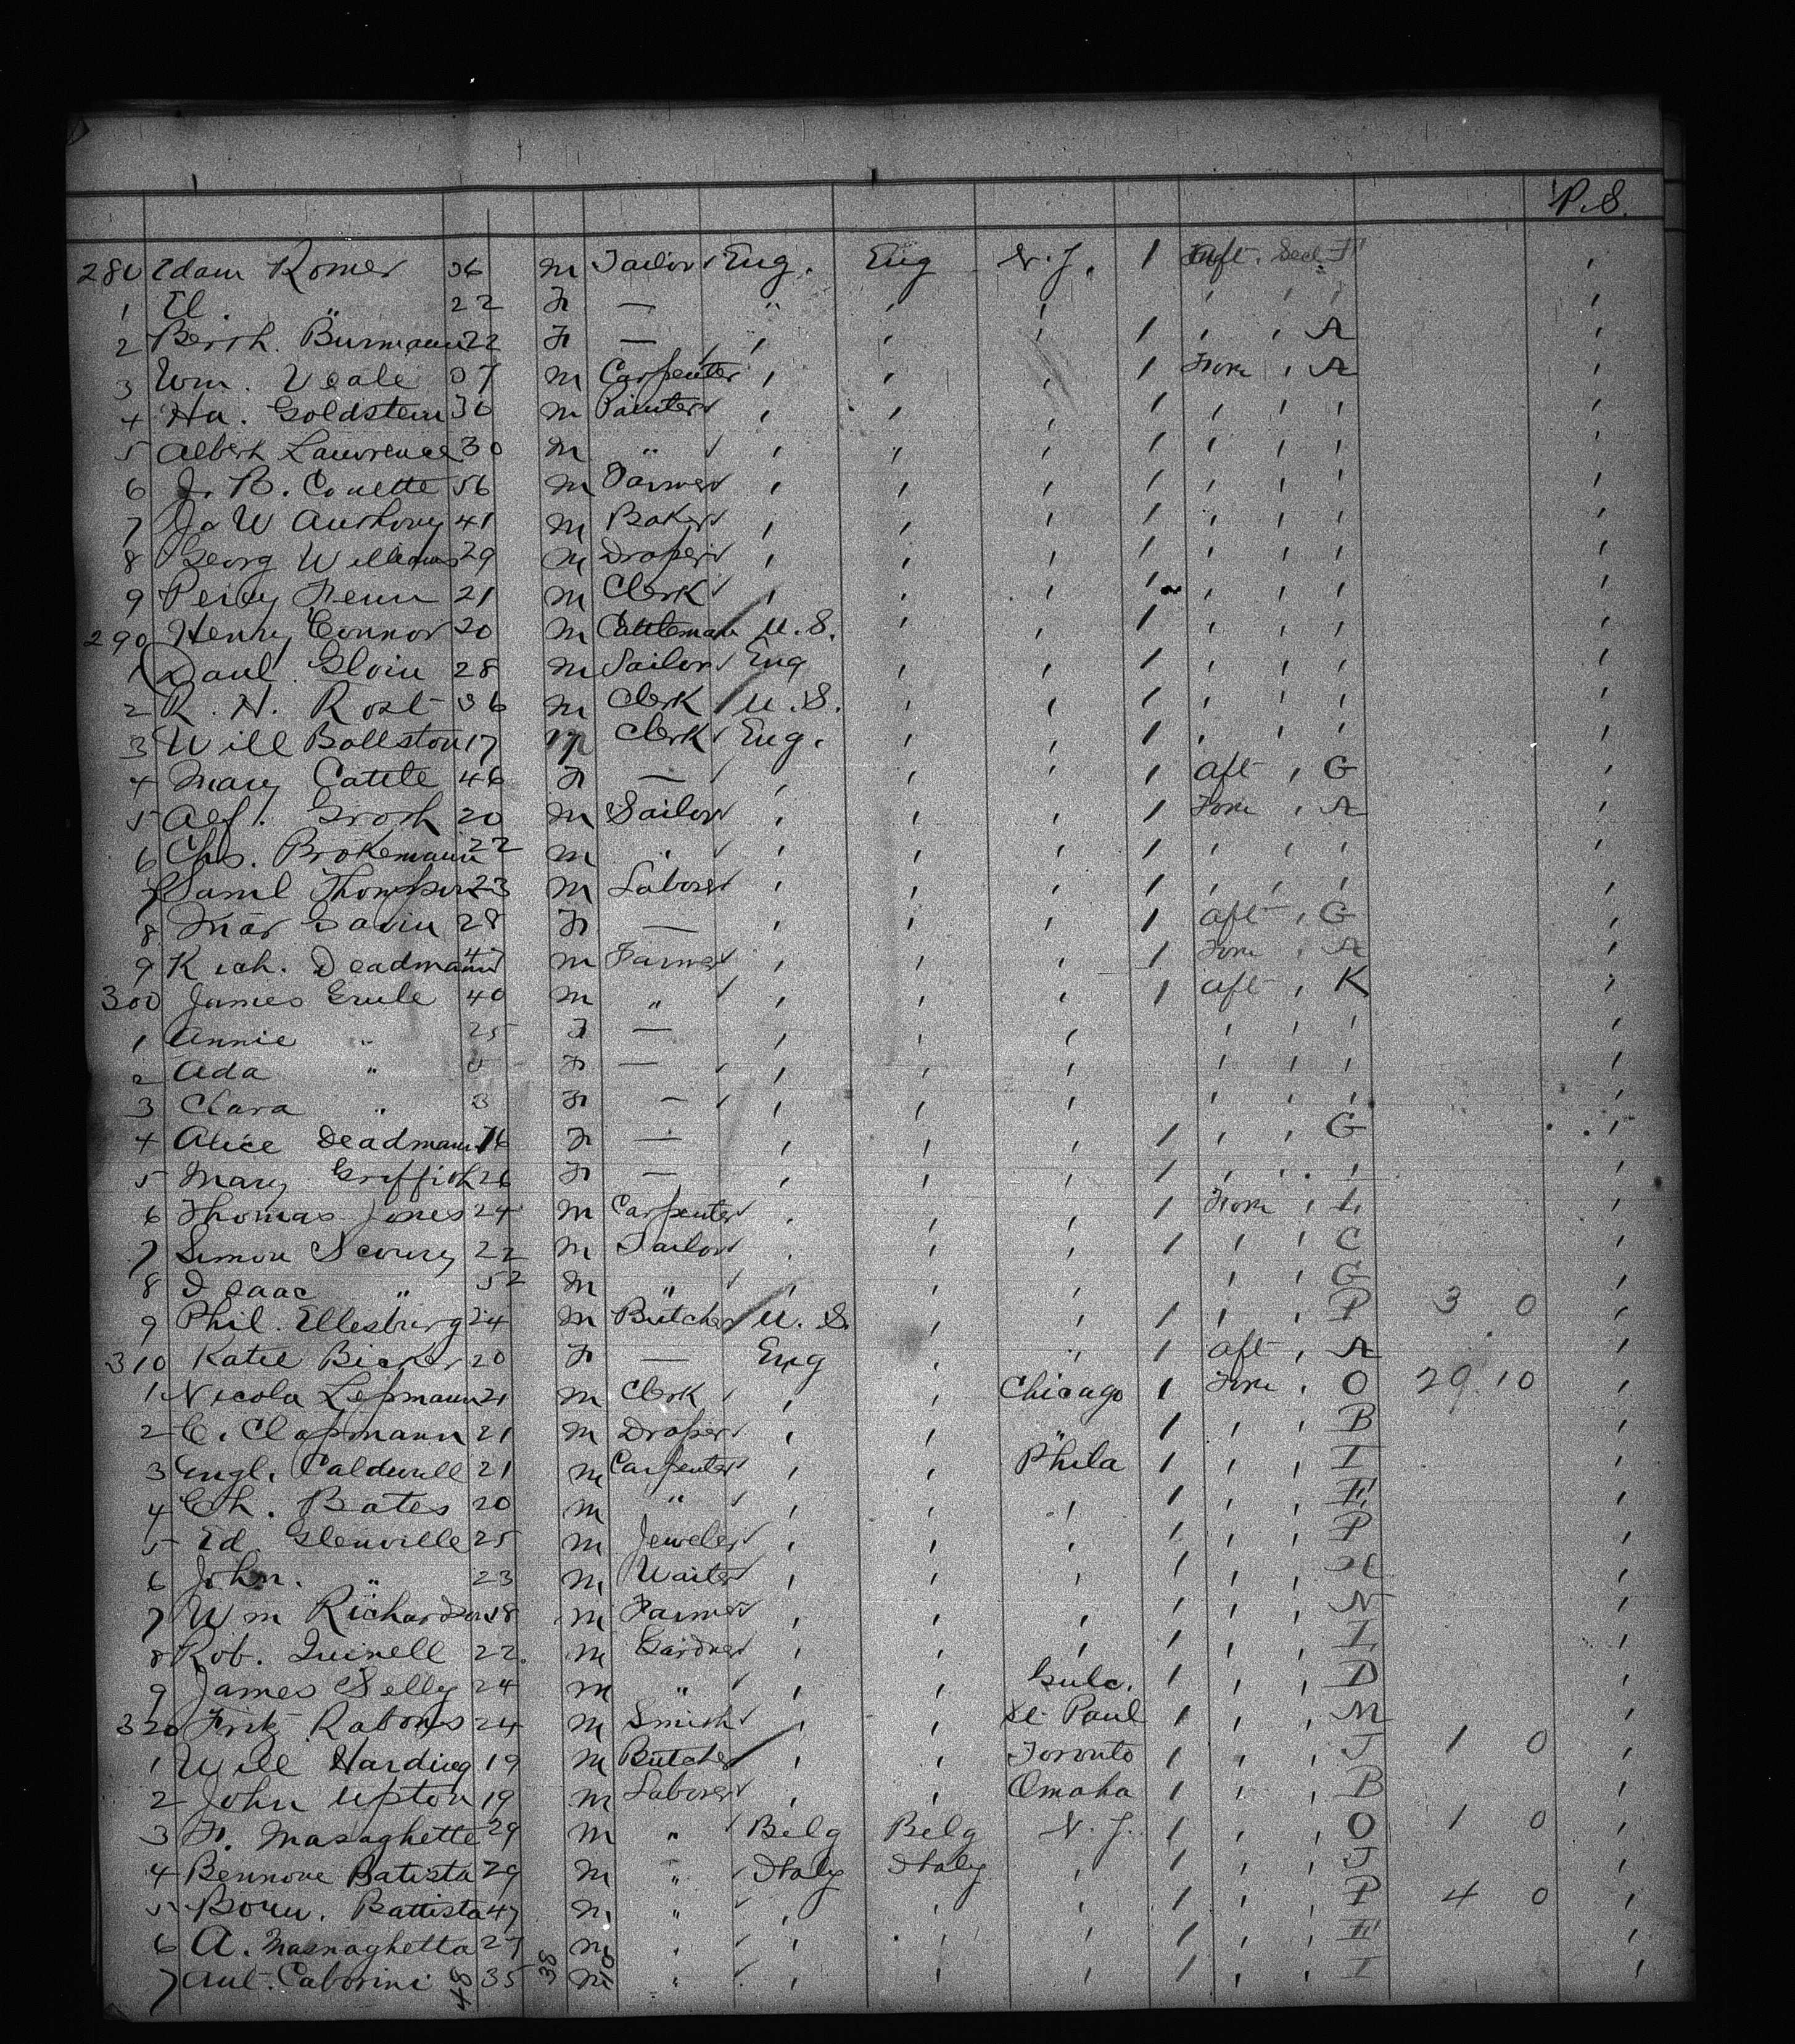 P.S.
280 Edam Romer 36 m Tailor Eng. Eng N.J. 1 Aft. Deck F
1 El. " 22 F — "
2 Berth. Burmann 22 F — 1 A
3 Wm. Veale 37 m Carpenter 1 Forw A
4 Ha. Goldstein 30 m Painter 1
5 Albert Lawrence 30 m " 1
6 J. B. Couette 56 m Farmer 1
7 Jo W Anthony 41 m Baker 1
8 Georg Williams 29 m Draper 1
9 Percy Fenn 21 m Clerk 1
290 Henry Connor 20 m Cattleman U.S. 1
1 Danl. Gloin 28 m Sailor Eng 1
2 R. N. Rose 36 m Clerk U.S. 1
3 Will Ballston 17 m Clerk Eng. 1
4 Mary Cattle 46 F — 1 Aft G
5 Alf. Grosh 20 m Sailor 1 Forw A
6 Chs. Brokemann 22 m " 1
7 Saml Thompson 23 m Laborer 1
8 Mar Gavin 28 F — 1 Aft G
9 Rich. Deadmann 47 m Farmer 1 Forw A
300 James Grule 40 m " 1 Aft K
1 Annie " 25 F —
2 Ada " F —
3 Clara " 3 F —
4 Alice Deadmann 16 F — 1 G
5 Mary Griffith 26 F — 1
6 Thomas Jones 24 m Carpenter 1 Forw L
7 Simon Scoury 22 m Tailor 1 C
8 Isaac " 52 m " G
9 Phil. Ellesburg 24 m Butcher U.S. 1 P 3 0
310 Katie Bicker 20 F — Eng " 1 Aft A
1 Nicola Lepmann 21 m Clerk Chicago 1 Forw O 29.10
2 C. Clapmann 21 m Draper " 1 B
3 Engl. Caldwell 21 m Carpenter Phila 1 I
4 Ch. Bates 20 m " 1 F
5 Ed. Glenville 25 m Jeweler 1 P
6 John. " 23 m Waiter 1 H
7 Wm Richardson 38 m Farmer 1 N
8 Rob. Quinell 22 m Gardner 1 L
9 James Selly 24 m " 1 D
320 Fritz Rabons 24 m Smith St. Paul 1 M
1 Will Harding 19 m Butcher Toronto 1 J 1 0
2 John Upton 19 m Laborer Omaha 1 B
3 F. Masaghette 29 m " Belg Belg N.J. 1 O 1 0
4 Bennove Batista 29 m " Italy Italy 1 J
5 Bouv. Battista 47 m " 1 P 4 0
6 A. Masnaghetta 27 m " 1 F
7 Ant. Caborini 35 m " 1 I
48 38 10